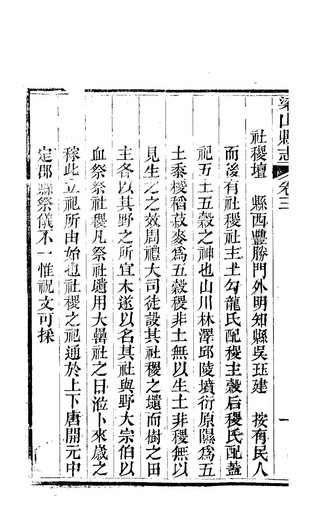 梁山縣志 卷三 一
社稷壇 縣西豐勝門外明知縣吳珏建 按有民人
而後有社稷社主土勾龍氏配稷主穀后稷氏配蓋
祀五土五穀之神也山川林澤邱陵墳衍原隰爲五
土黍稷稻菽麥爲五穀稷非土無以生土非稷無以
見生之之效周禮大司徒設其社稷之壝而樹之田
主各以其野之所宜木遂以名其社與野大宗伯以
血祭祭社稷凡祭社壝用大罍社之日涖卜來歲之
稼此立祀所由始也社稷之祀通於上下唐開元中
定郡縣祭儀不一惟祝文可採